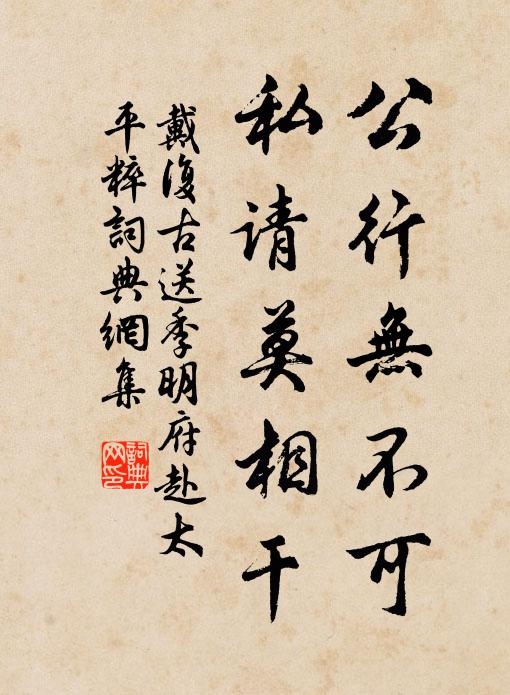 公行無不可
私请莫相干
戴復古送季明府赴太
平粹詞典網集
詞典
网印